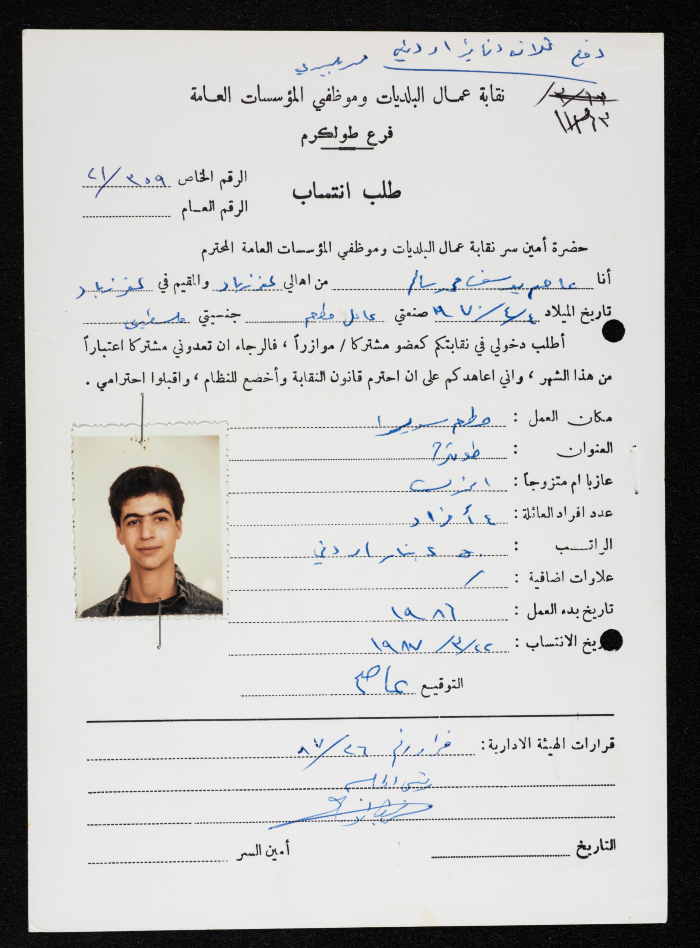 دفع ثلاثة دنانير اردنية
نقابة عمال البلديات وموظفي المؤسسات العامة
فرع طولكرم
الرقم الخاص ٢١/٣٥٩
طلب انتساب
الرقم العام
حضرة أمين سر نقابة عمال البلديات وموظفي المؤسسات العامة المحترم
أنا عاصم يوسف محمد سالم من اهالي كفرزباد والمقيم في كفرزباد
تاريخ الميلاد ٤/٤/١٩٧٠ صنعتي عامل مطعم جنسيتي فلسطيني
أطلب دخولي في نقابتكم كعضو مشتركا / موازراً ، فالرجاء ان تعدوني مشتركا اعتباراً
من هذا الشهر ، واني اعاهدكم على ان احترم قانون النقابة وأخضع للنظام ، واقبلوا احترامي .
مكان العمل : مطعم
العنوان :
عازبا ام متزوجاً : اعزب
عدد افراد العائلة : ٤ أفراد
الراتب : دينار اردني
علاوات اضافية : /
تاريخ بدء العمل : ١٩٨٦
تاريخ الانتساب : ٢٢/٣/١٩٨٧
التوقيع عاصم
قرارات الهيئة الادارية : قرار رقم ٢٦/٨٧
التاريخ أمين السر